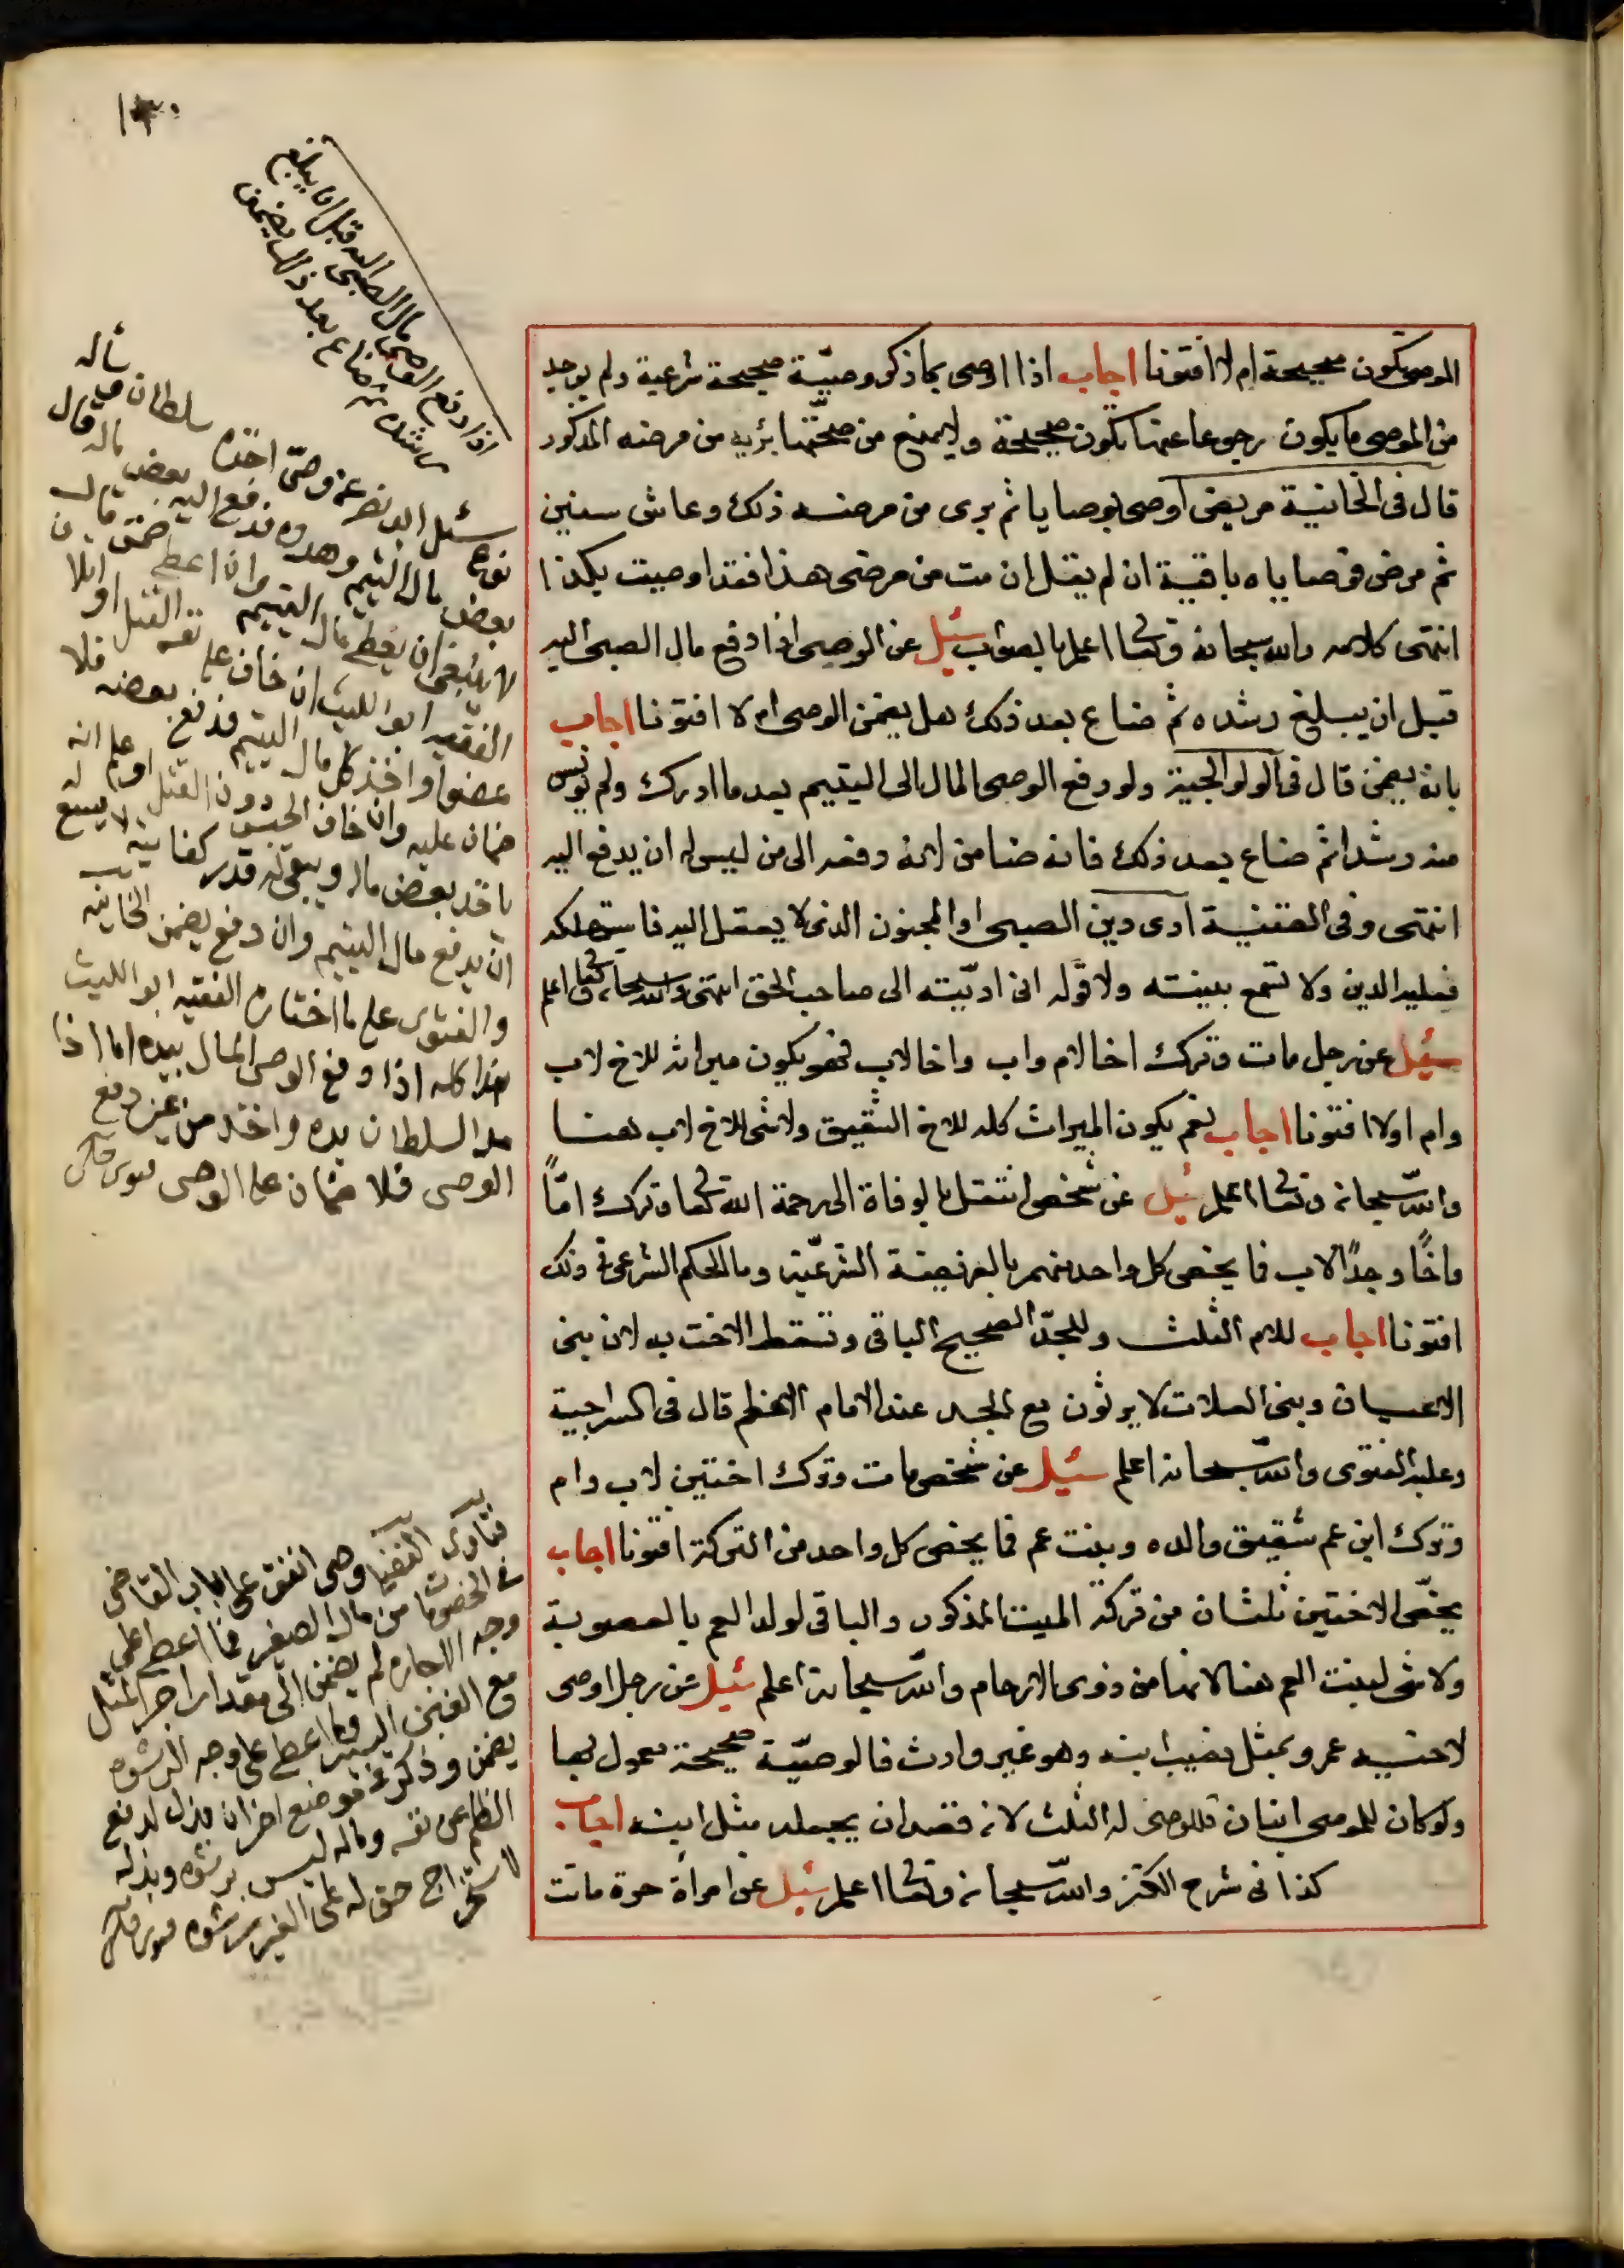 ١٣٠
الموصى تكون صحيحة ام لا افتونا اجاب اذا اوصى بما ذكر وصيّة صحيحة شرعية ولم يوجد
من الموصى ما يكون رجوعا عنها تكون صحيحة ولا يمنع من صحّتها برؤه من مرضه المذكور
قال فى الخانية مريض اوصى بوصايا ثم برى من مرضه ذلك وعاش سنين
ثم مرض فوصاياه باقية ان لم يقل ان مت من مرضى هذا فقد اوصيت بكذا
انتهى كلامه والله سبحانه وتعالى اعلم بالصواب سئل عن الوصى اذا دفع مال الصبى اليه
قبل ان يبلغ رشده ثم ضاع بعد ذلك هل يضمن الوصى ام لا افتونا اجاب
بانه يضمن قال فى الولوالجية ولو دفع الوصى المال الى اليتيم بعد ما ادرك ولم يونس
منه رشدا ثم ضاع بعد ذلك فانه ضامن لانه دفعه الى من ليس له ان يدفع اليه
انتهى وفى القنية ادى دين الصبى او المجنون الذى لا يعقل اليه فاستهلكه
فعليه الدين ولا تسمع بينته ولا قوله انى ادّيته الى صاحب الحق انتهى والله سبحانه وتعالى اعلم
سئل عن رجل مات وترك اخا لام واب واخا لاب فهو يكون ميراثه للاخ لاب
وام اولا افتونا اجاب نعم يكون الميراث كله للاخ الشقيق ولا شى للاخ لاب هنا
والله سبحانه وتعالى اعلم سئل عن شخص انتقل بالوفاة الى رحمة الله تعالى وترك امّاً
واخًا وجدًا لاب فما يخص كل واحد منهم بالفريضة الشرعيّة وما الحكم الشرعى فى ذلك
افتونا اجاب للام الثلث وللجدّ الصحيح الباقى وتسقط الاخت به لان بنى
الاعيان وبنى العلات لا يرثون مع الجد عند الامام الاعظم قال فى السراجية
وعليه الفتوى والله سبحانه اعلم سئل عن شخص مات وترك اختين لاب وام
وترك ابن عم شقيق والده وبنت عم فما يخص كل واحد من التركة افتونا اجاب
يخصّ الاختين ثلثان من تركة الميت المذكور والباقى لولد العم بالعصوبة
ولا شى لبنت العم هنا لانها من ذوى الارحام والله سبحانه اعلم سئل عن رجل اوصى
لاخيه عمرو بمثل نصيب ابنه وهو غير وارث فالوصيّة صحيحة معمول بها
ولو كان للموصى ابنان فللموصى له الثلث لانه قصد ان يجعله مثل ابنه اجاب
كذا فى شرح الكنز والله سبحانه وتعالى اعلم سئل عن امراة حرة ماتت
اذا دفع الوصى مال الصبى اليه قبل ان يبلغ
رشده ثم ضاع بعد ذلك يضمن
سئل ابو نصر عن وصىّ اخذه سلطان
وهدده فدفع اليه بعض ماله قال
بعض مال اليتيم
لا ينبغى ان يعطى مال اليتيم وان اعطى ضمن قال
الفقيه ابو الليث ان خاف على نفسه القتل او
عضوا واخذ كل مال اليتيم فدفع بعضه فلا
ضمان عليه وان خاف الحبس دون القتل او علم انه
ياخذ بعض ماله ويبقى له قدر كفايته لا يسع له
ان يدفع مال اليتيم وان دفع يضمن الخانية
والفتوى على ما اختاره الفقيه ابو الليث
هذا كله اذا دفع الوصى المال بيده اما اذا
مد السلطان يده واخذ من غير دفع
الوصى فلا ضمان على الوصى
وصى انفق على باب القاضى
فى الخصومات من مال الصغير فما اعطى على
وجه الاجاره لم يضمن الى مقدار اجر المثل
مع الغبن اليسير وما اعطى على وجه الرشوه
يضمن وذكر فى موضع اخر ان بذل لدفع
الظلم عن نفسه وماله ليس برشوه وبذله
لاستخراج حق له على الغير رشوه